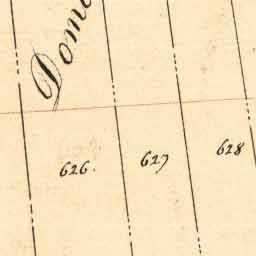 Dom
626.
627
628